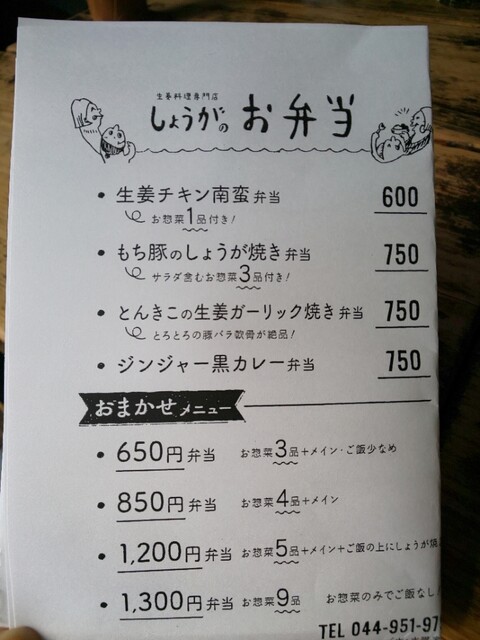 生姜料理専門店
しょうがのお弁当
・生姜チキン南蛮弁当 600
お惣菜1品付き!
・もち豚のしょうが焼き弁当 750
サラダ含むお惣菜3品付き!
・とんきこの生姜ガーリック焼き弁当 750
とろとろの豚バラ軟骨が絶品!
・ジンジャー黒カレー弁当 750
おまかせメニュー
・650円弁当 お惣菜3品+メイン・ご飯少なめ
・850円弁当 お惣菜4品+メイン
・1,200円弁当 お惣菜5品+メイン+ご飯の上にしょうが焼
・1,300円弁当 お惣菜9品 お惣菜のみでご飯なし
TEL 044-951-97